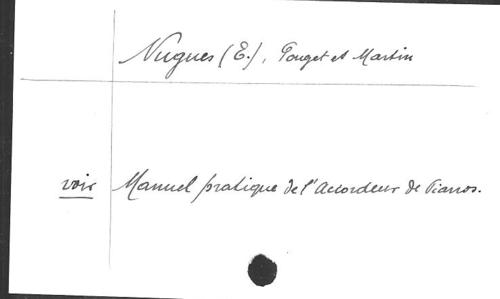 Nugues (E.), Pouget et Martin
voir Manuel pratique de l'Accordeur de Pianos.